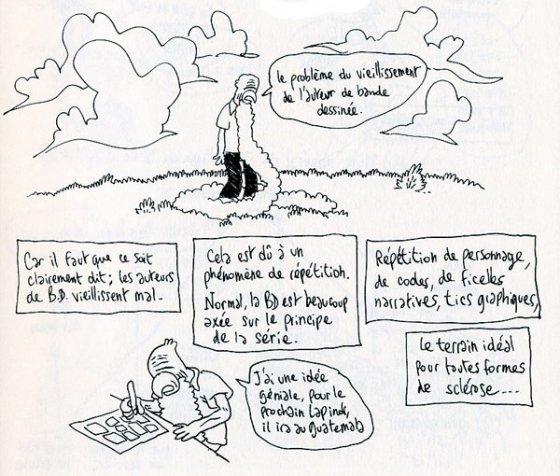 le problème du vieillissement
de l'auteur de bande
dessinée.
Car il faut que ce soit
clairement dit ; les auteurs
de B.D. vieillissent mal.
Cela est dû à un
phénomène de répétition.
Normal, la BD est beaucoup
axée sur le principe
de la série.
Répétition de personnage,
de codes, de ficelles
narratives, tics graphiques,
Le terrain idéal
pour toutes formes
de sclérose....
J'ai une idée
géniale, pour le
prochain Lapinot,
il ira au Guatemala